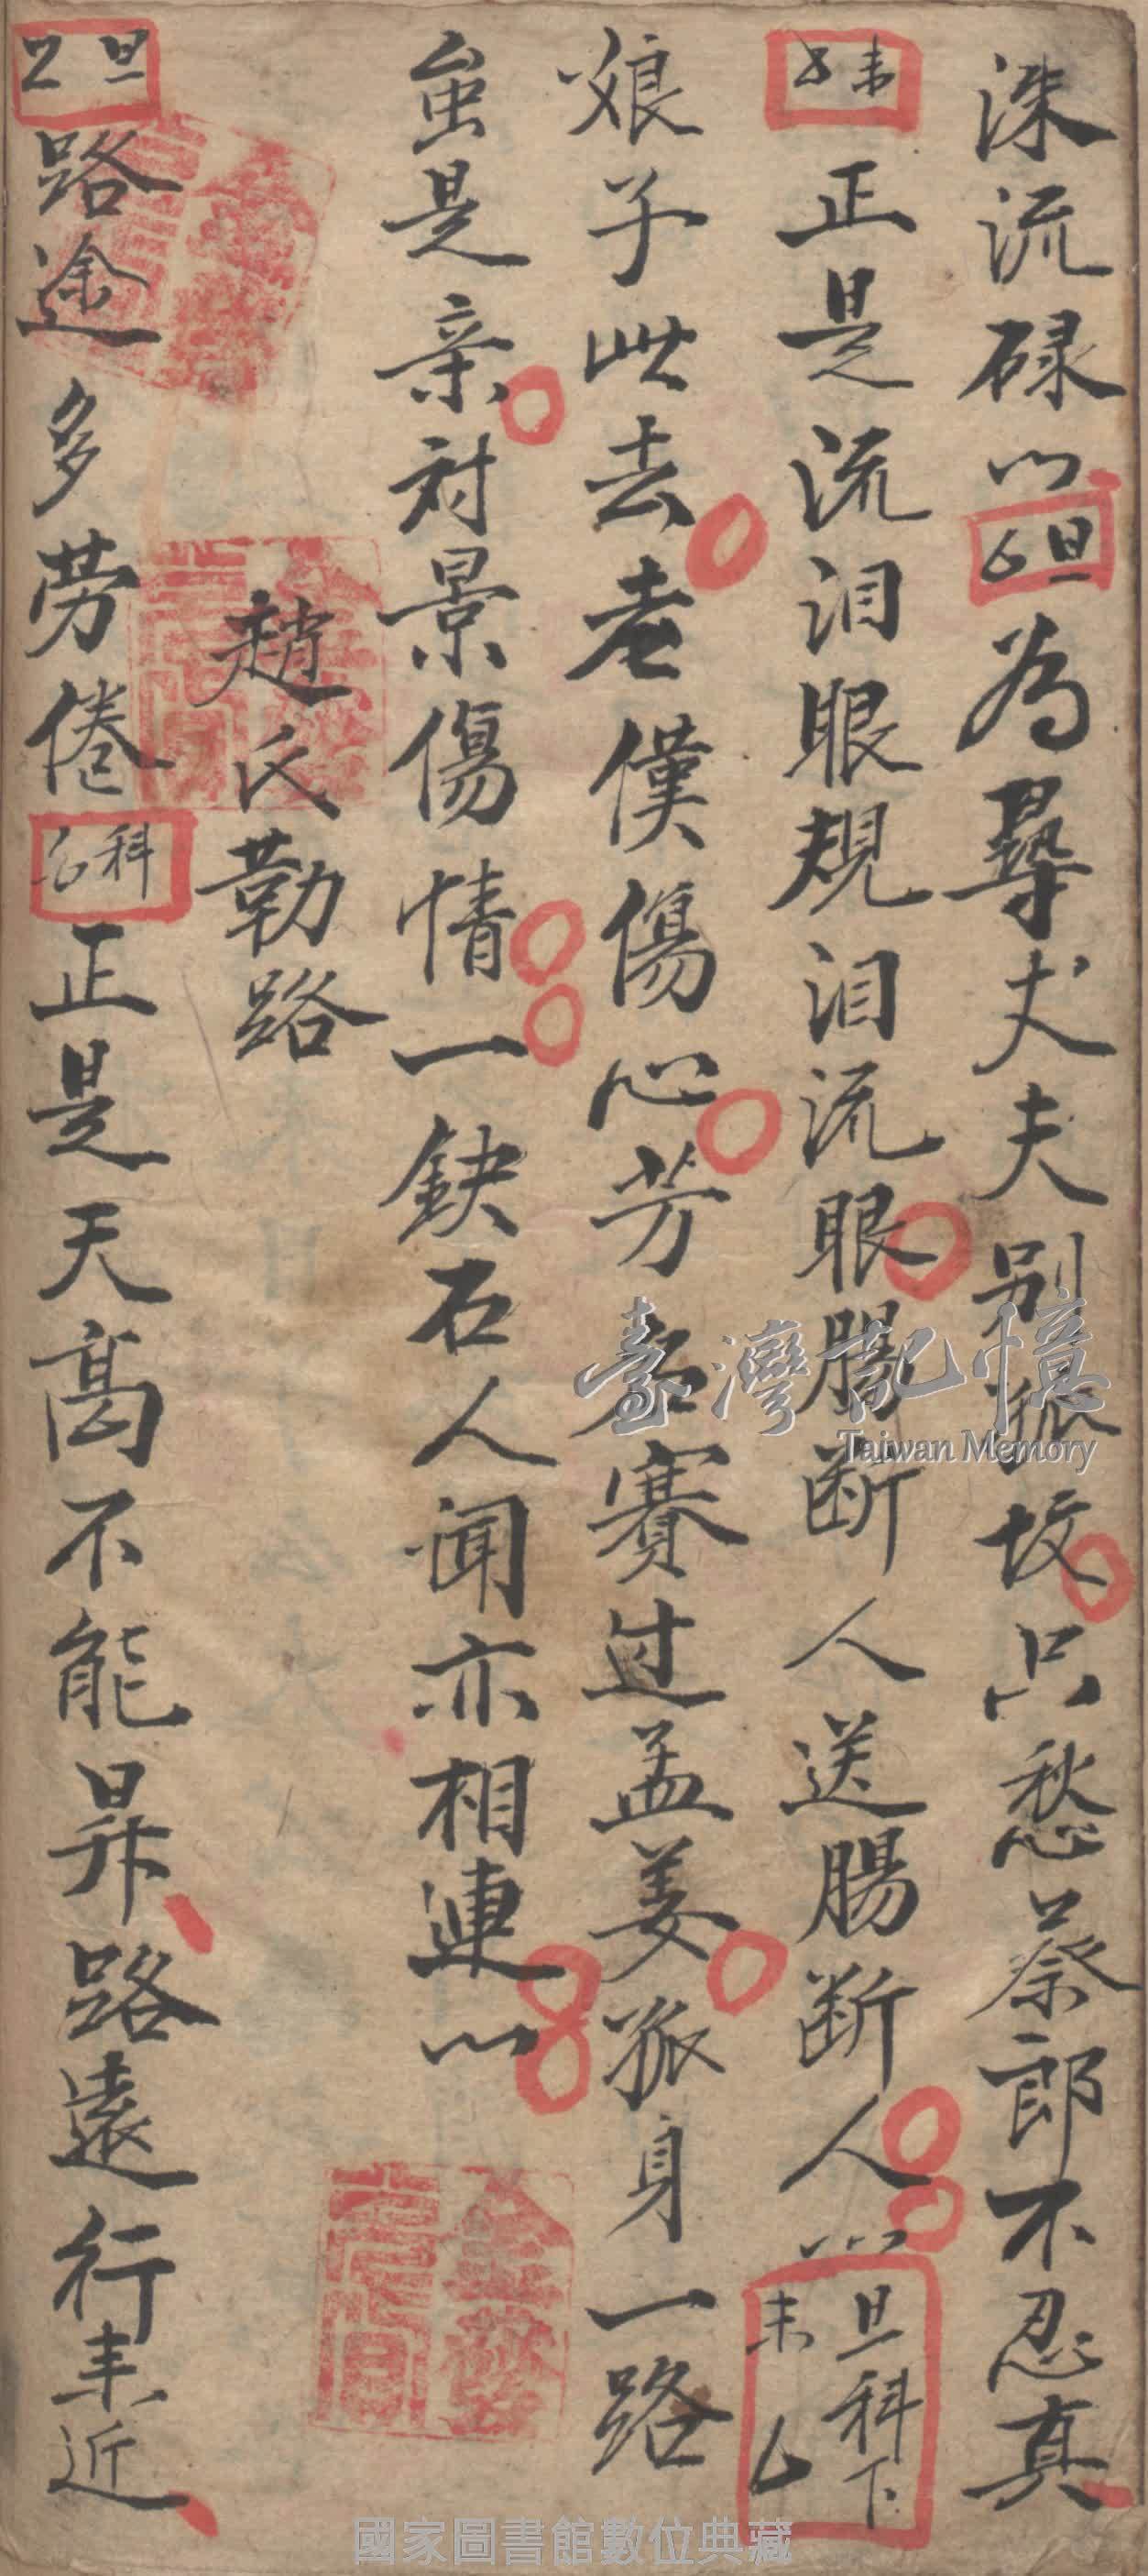 洙流碌〻旦白為尋丈夫別孤坟只愁蔡郎不忍真
末白正是流泪眼規泪流眼腸断人送腸断人〻旦科下末白
娘子此去老僕傷心芳名賽过孟姜孤身一路
虽是亲对景傷情一鉄石人闻亦相連〻
趙氏勒路
旦路途多劳倦科白正是天高不能昇路遠行未近
臺灣記憶
Taiwan Memory
國家圖書館數位典藏